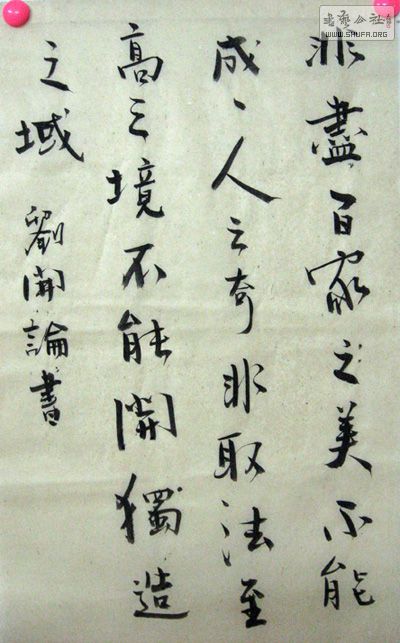 非盡百家之美不能
成一人之奇非取法至
高之境不能開獨造
之域
劉開論書
WWW.SHUFA.ORG